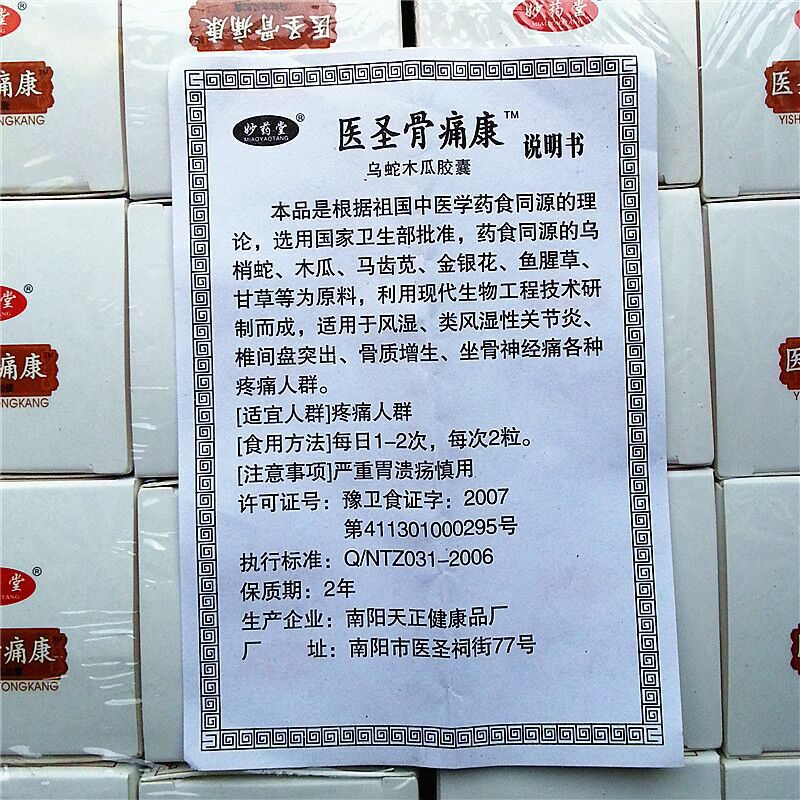 妙药堂®
医圣骨痛康
痛康
ONGKANG
医
YISH
妙药堂®
MIAOYAOTANG
医圣骨痛康™ 说明书
乌蛇木瓜胶囊
本品是根据祖国中医学药食同源的理
论，选用国家卫生部批准，药食同源的乌
梢蛇、木瓜、马齿苋、金银花、鱼腥草、
甘草等为原料，利用现代生物工程技术研
制而成，适用于风湿、类风湿性关节炎、
椎间盘突出、骨质增生、坐骨神经痛各种
疼痛人群。
[适宜人群]疼痛人群
[食用方法]每日1-2次，每次2粒。
[注意事项]严重胃溃疡慎用
许可证号：豫卫食证字：2007
第411301000295号
执行标准：Q/NTZ031-2006
保质期：2年
生产企业：南阳天正健康品厂
厂 址：南阳市医圣祠街77号
堂®
痛康
TONGKANG
堂®
TANG
痛康
TONGKANG